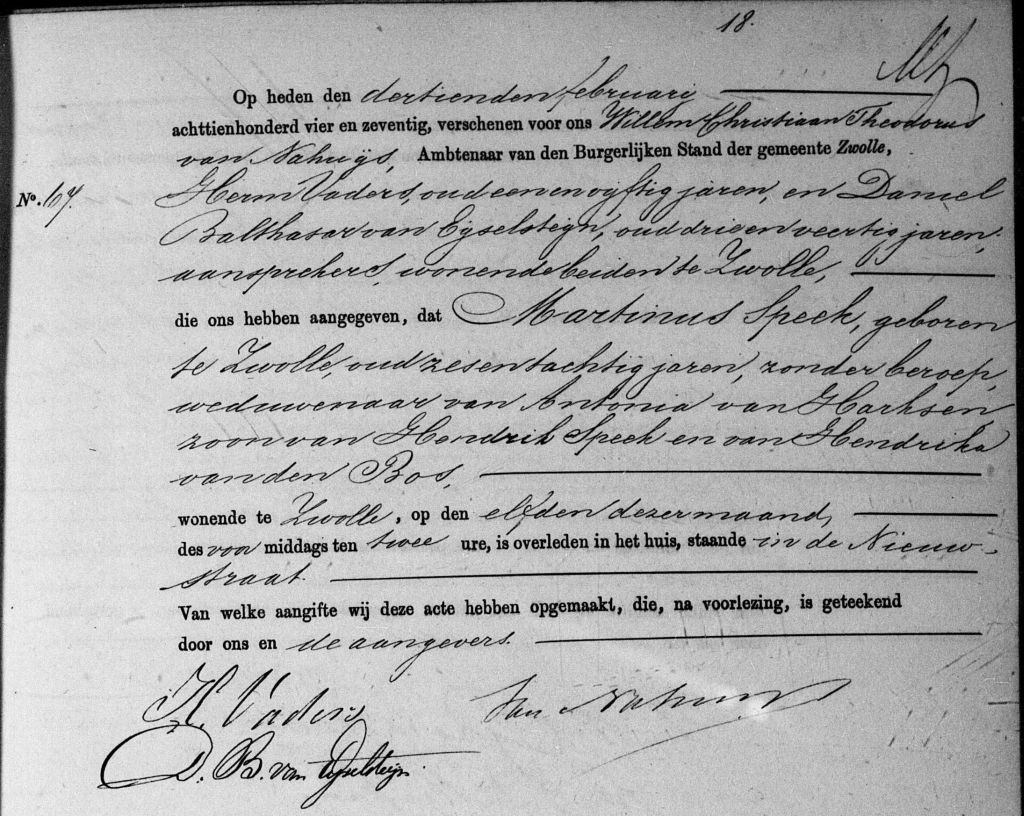 18.
Op heden den dertienden februarij
achttienhonderd vier en zeventig, verschenen voor ons Willem Christiaan Theodorus
van Nahuijs, Ambtenaar van den Burgerlijken Stand der gemeente Zwolle,
No. 67. Herm Vaders, oud een en vijftig jaren, en Daniel
Balthasar van Eijselsteijn, oud drie en veertig jaren,
aansprekers, wonende beiden te Zwolle,
die ons hebben aangegeven, dat Martinus Speek, geboren
te Zwolle, oud zes en tachtig jaren, zonder beroep,
weduwenaar van Antonia van Harksen
zoon van Hendrik Speek en van Hendrika
van den Bos,
wonende te Zwolle, op den elfden dezer maand,
des voor middags ten twee ure, is overleden in het huis, staande in de Nieuw-
straat.
Van welke aangifte wij deze acte hebben opgemaakt, die, na voorlezing, is geteekend
door ons en de aangevers.
H. Vaders van Nahuijs
D. B. van Eijselsteijn